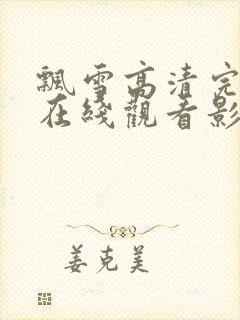 飄雪高清完
在綫觀看影
姜克美